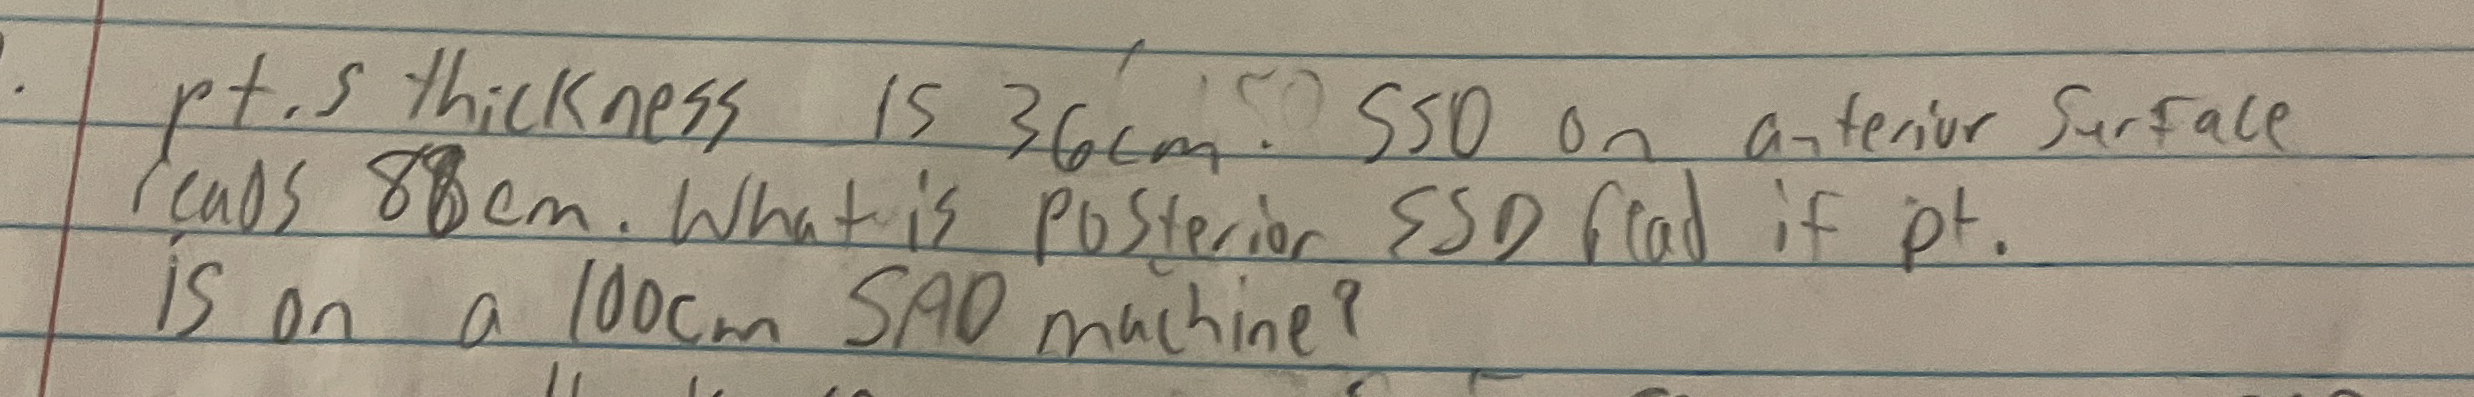 pt.s thickness is 36cm. SSD on anterior surface
reads 88cm. What is posterior SSD read if pt.
is on a 100cm SAD machine?